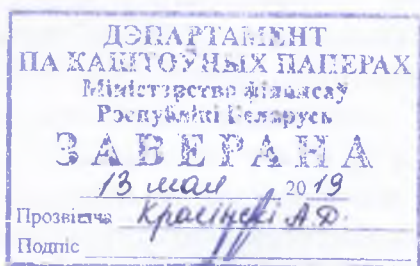 ДЭПАРТАМЕНТ
ПА КАШТОЎНЫХ ПАПЕРАХ
Міністэрства фінансаў
Рэспублікі Беларусь
ЗАВЕРАНА
13 мая 2019
Прозвішча А.Д.
Подпіс